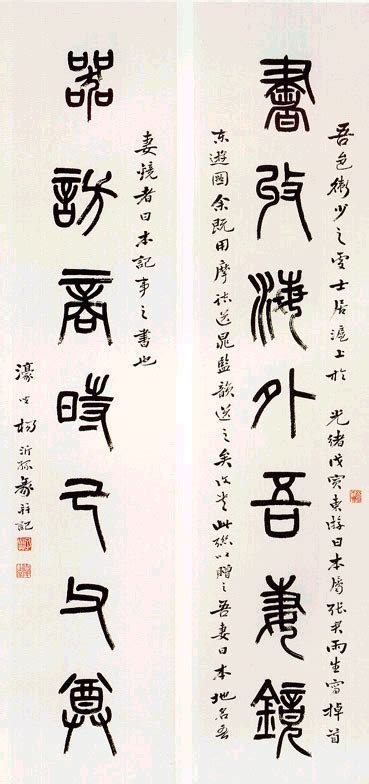 吾邑衛少之士居滬上於 光緒戊寅東游日本屬張君雨生寫掉首
書攷海外吾妻鏡
東遊圖余既用摩詰送晁監韻送之矣此聯以贈之吾妻日本地名吾
妻鏡者日本記事之書也
器訪商時己父尊
濠叟楊沂孫篆并記